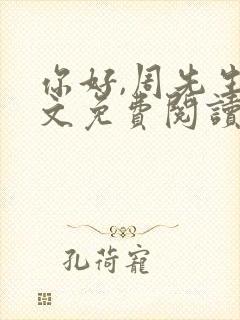 你好,周先生
文免费閱讀
孔荷寵